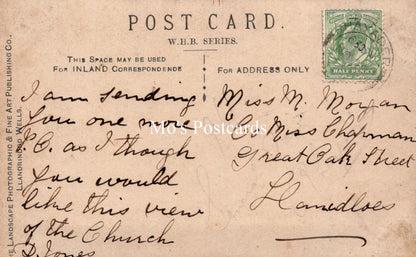 POST CARD.
W.B.B. SERIES.
THIS SPACE MAY BE USED
FOR INLAND CORRESPONDENCE
FOR ADDRESS ONLY
HALF PENNY
THE LANDSCAPE PHOTOGRAPHIC & FINE ART PUBLISHING CO.
LLANDRINDOD WELLS.
I am sending
you one more
P.C. as I though
you would
like this view
of the Church
D Jones
Miss M. Morgan
C/o Miss Chapman
Great Oak Street
Llanidloes
Mo's Postcards